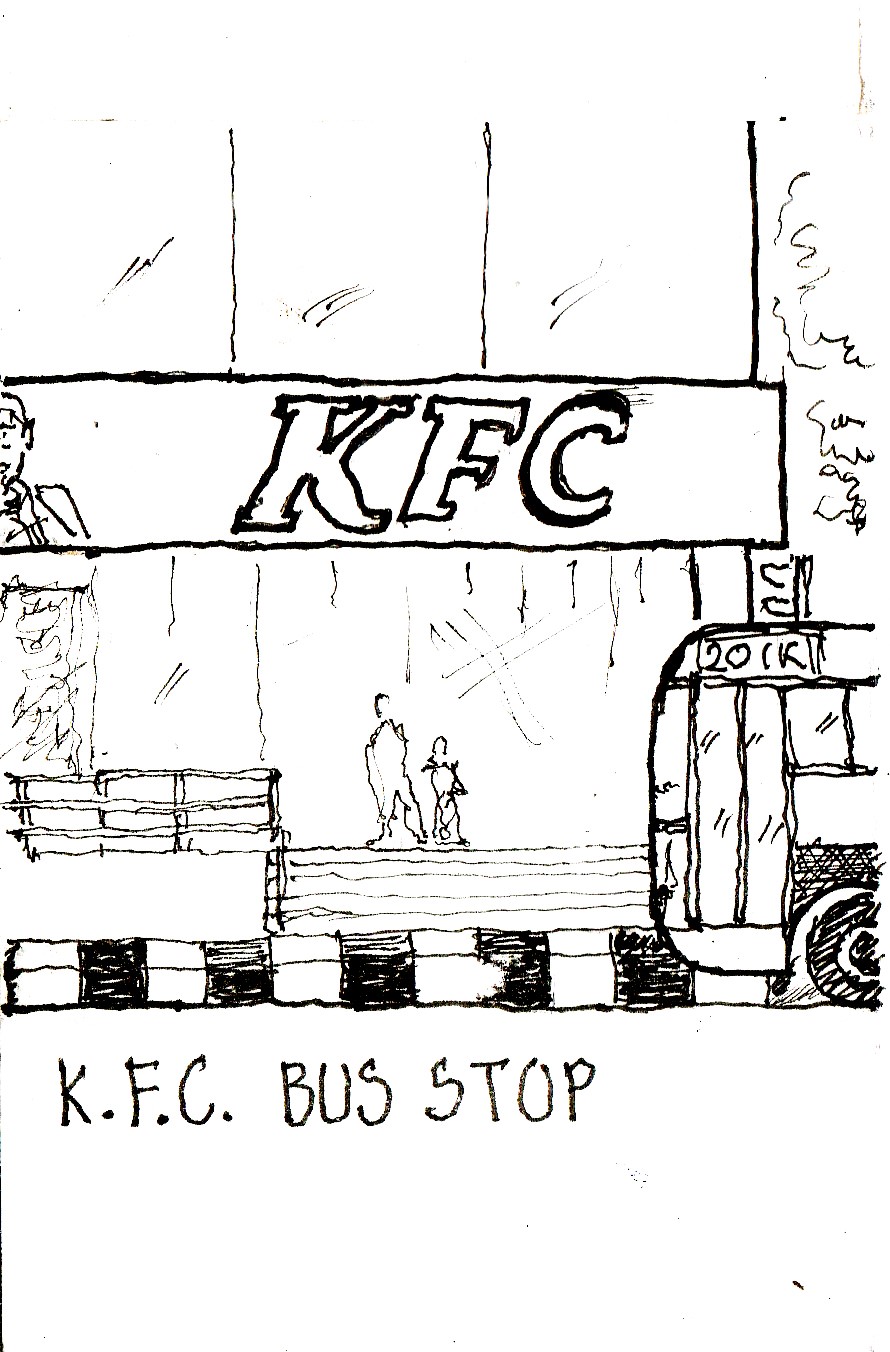 KFC
201(K)
K.F.C. BUS STOP